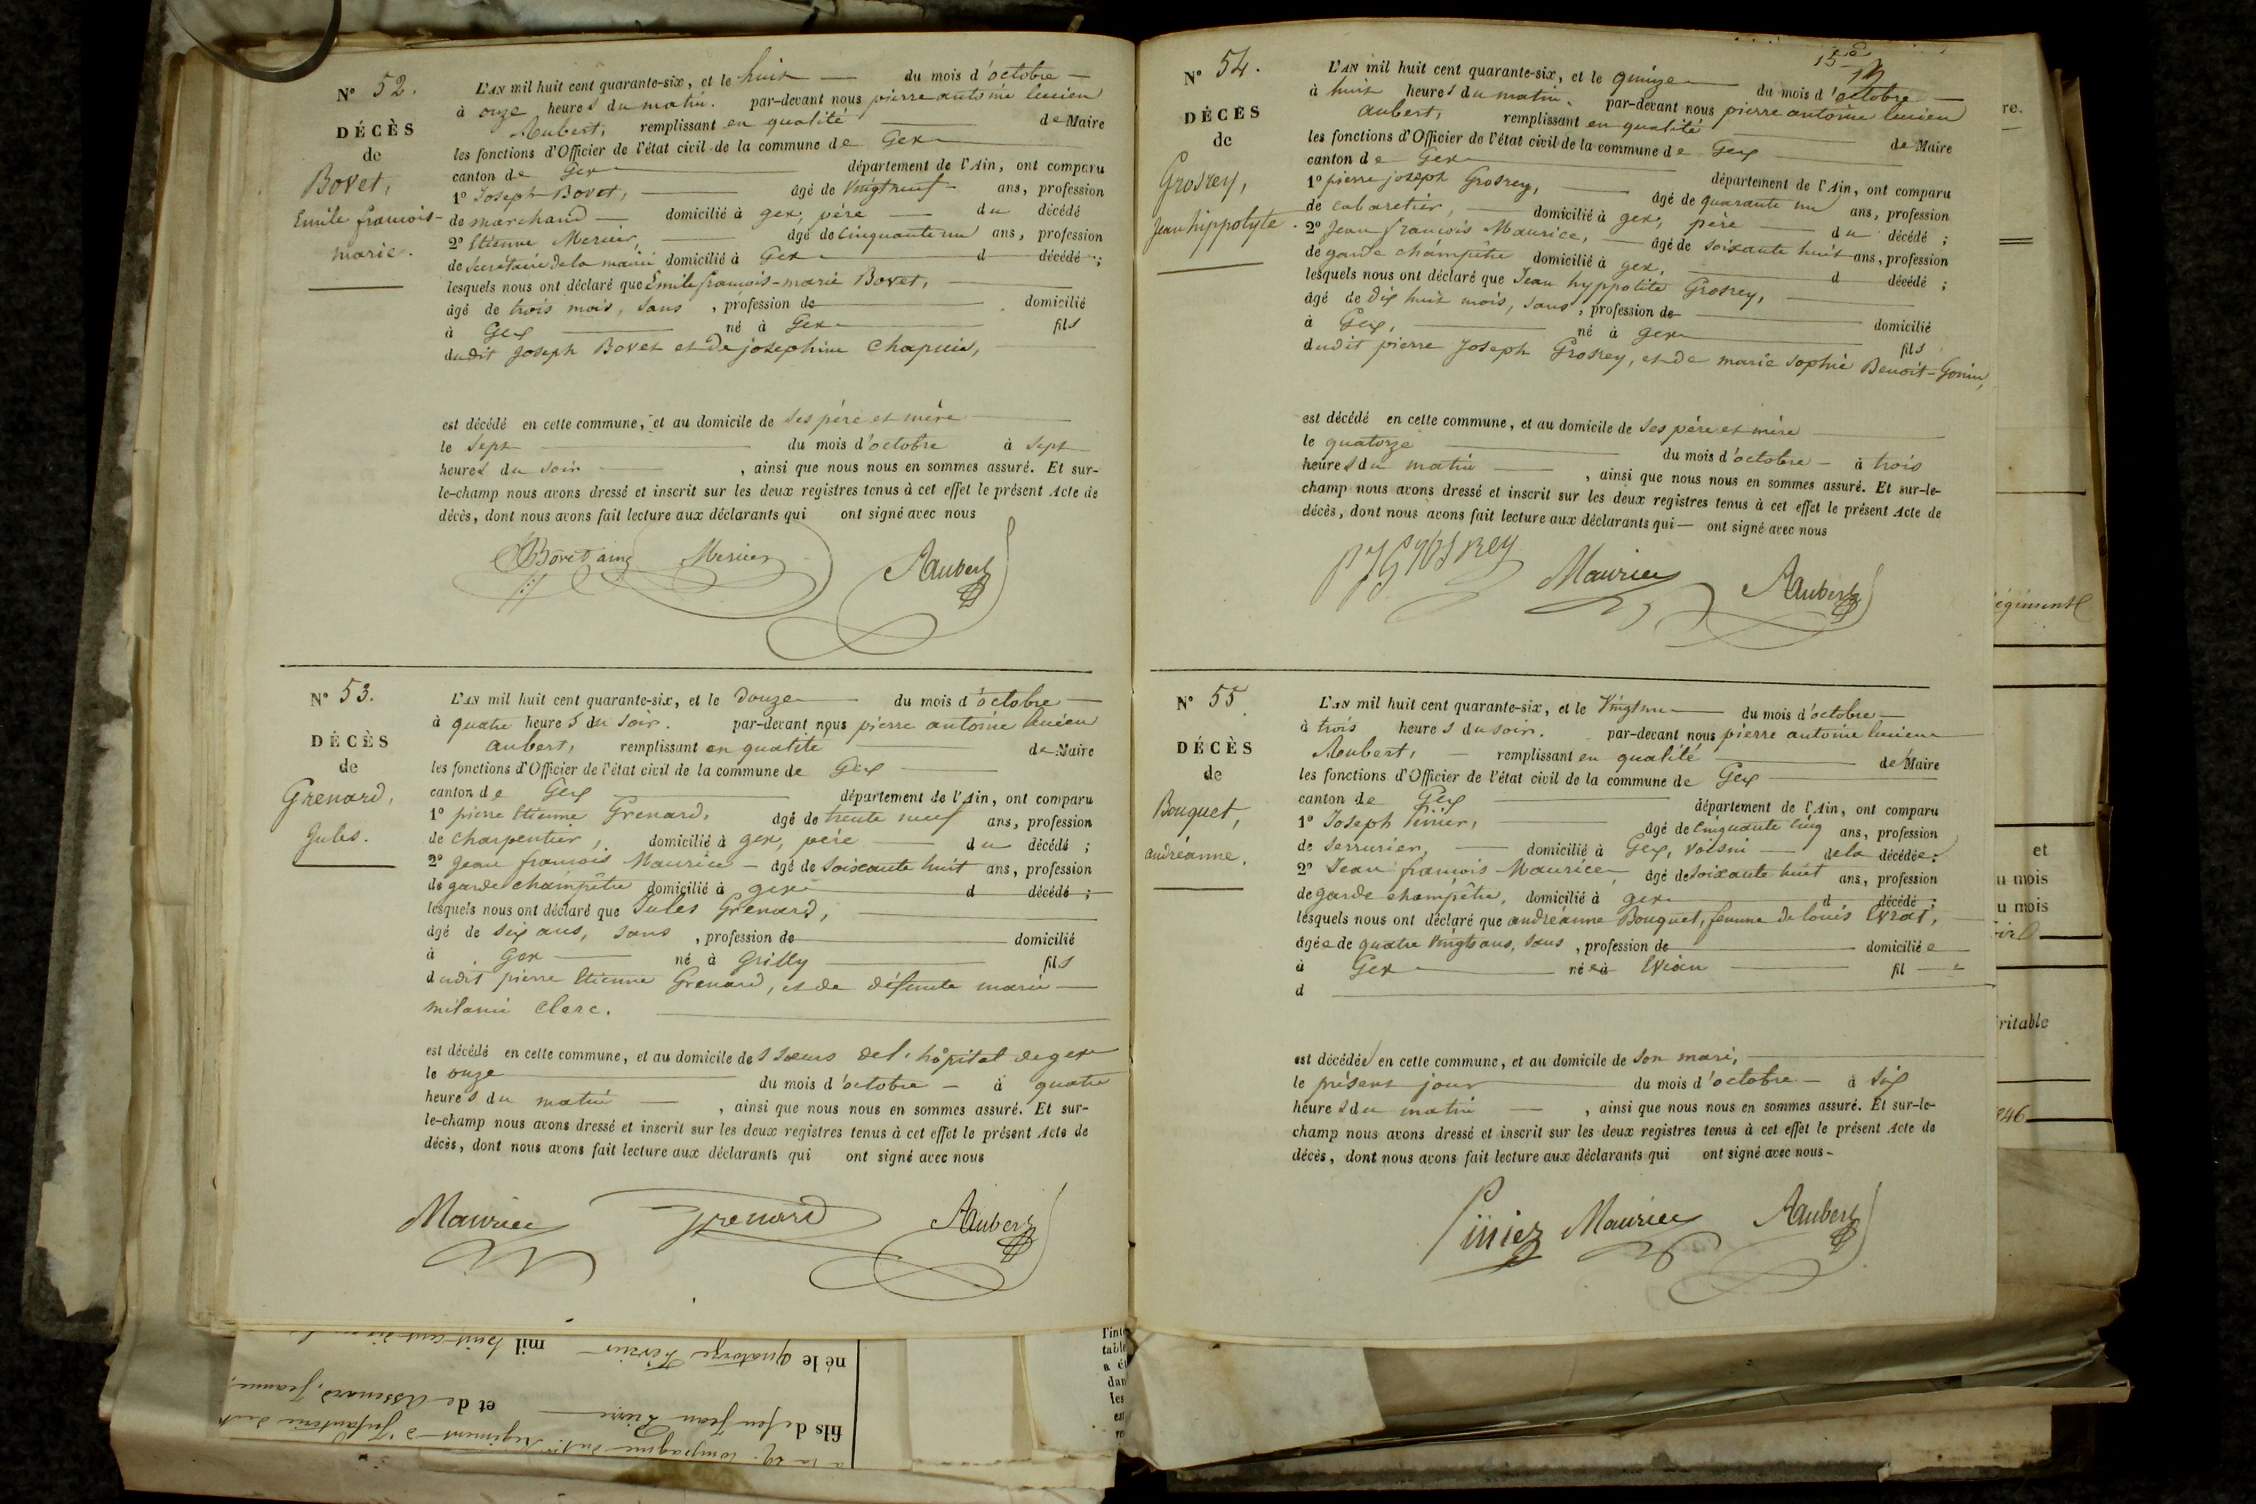 N° 52.
DÉCÈS
de
Bovet,
Emile françois-
marie.
L'AN mil huit cent quarante-six, et le huit du mois d'octobre
à onze heures du matin. par-devant nous pierre antoine lucien
Aubert, remplissant en qualité de Maire
les fonctions d'Officier de l'état civil de la commune de Gex
canton de Gex département de l'Ain, ont comparu
1° Joseph Bovet, âgé de vingt neuf ans, profession
de marchand domicilié à gex, père du décédé
2° Etienne Mercier, âgé de cinquante un ans, profession
de secrétaire de la mairie domicilié à Gex d décédé ;
lesquels nous ont déclaré que Emile françois-marie Bovet,
âgé de trois mois, sans , profession de domicilié
à Gex né à Gex fils
dudit Joseph Bovet et de josephine Chapuis,
est décédé en cette commune, et au domicile de ses père et mère
le sept du mois d'octobre à sept
heures du soir , ainsi que nous nous en sommes assuré. Et sur-
le-champ nous avons dressé et inscrit sur les deux registres tenus à cet effet le présent Acte de
décès, dont nous avons fait lecture aux déclarants qui ont signé avec nous
Bovet ainé Mercier Aubert
N° 53.
DÉCÈS
de
Grenard,
Jules.
L'AN mil huit cent quarante-six, et le douze du mois d'octobre
à quatre heures du soir. par-devant nous pierre antoine lucien
aubert, remplissant en qualité de Maire
les fonctions d'Officier de l'état civil de la commune de Gex
canton de Gex département de l'Ain, ont comparu
1° pierre Etienne Grenard, âgé de trente neuf ans, profession
de charpentier, domicilié à gex, père du décédé ;
2° Jean françois Maurice âgé de soixante huit ans, profession
de garde champêtre domicilié à gex d décédé ;
lesquels nous ont déclaré que Jules Grenard,
âgé de six ans, sans , profession de domicilié
à Gex né à Grilly fils
dudit pierre Etienne Grenard, et de défunte marie
mélanie Clerc.
est décédé en cette commune, et au domicile des sœurs de l'hôpital de gex
le onze du mois d'octobre à quatre
heures du matin , ainsi que nous nous en sommes assuré. Et sur-
le-champ nous avons dressé et inscrit sur les deux registres tenus à cet effet le présent Acte de
décès, dont nous avons fait lecture aux déclarants qui ont signé avec nous
Maurice Grenard Aubert
né le quatorze Février mil huit cent
fils de feu Jean Pierre et de
15e
N° 54.
DÉCÈS
de
Grosrey,
Jean hippolyte.
L'AN mil huit cent quarante-six, et le quinze du mois d'octobre
à huit heures du matin. par-devant nous pierre antoine lucien
aubert, remplissant en qualité de Maire
les fonctions d'Officier de l'état civil de la commune de Gex
canton de Gex département de l'Ain, ont comparu
1° pierre joseph Grosrey, âgé de quarante un ans, profession
de cabaretier, domicilié à gex, père du décédé ;
2° Jean françois Maurice, âgé de soixante huit ans, profession
de garde champêtre domicilié à gex, d décédé ;
lesquels nous ont déclaré que Jean hyppolite Grosrey,
âgé de dix huit mois, sans , profession de domicilié
à Gex, né à gex fils
dudit pierre Joseph Grosrey, et de marie sophie Benoit-Gonin,
est décédé en cette commune, et au domicile de ses père et mère
le quatorze du mois d'octobre à trois
heures du matin , ainsi que nous nous en sommes assuré. Et sur-le-
champ nous avons dressé et inscrit sur les deux registres tenus à cet effet le présent Acte de
décès, dont nous avons fait lecture aux déclarants qui ont signé avec nous
PJ Grosrey Maurice Aubert
N° 55
DÉCÈS
de
Bouquet,
andréanne.
L'AN mil huit cent quarante-six, et le Vingt un du mois d'octobre
à trois heures du soir. par-devant nous pierre antoine lucien
Aubert, remplissant en qualité de Maire
les fonctions d'Officier de l'état civil de la commune de Gex
canton de Gex département de l'Ain, ont comparu
1° Joseph âgé de cinquante cinq ans, profession
de serrurier, domicilié à Gex, voisin de la décédée ;
2° Jean françois Maurice, âgé de soixante huit ans, profession
de garde champêtre, domicilié à gex d décédé ;
lesquels nous ont déclaré que andréanne Bouquet, femme de louis
âgée de quatre vingts ans, sans , profession de domiciliée
à Gex née à Evian fil
d
est décédée en cette commune, et au domicile de son mari,
le présent jour du mois d'octobre à six
heures du matin , ainsi que nous nous en sommes assuré. Et sur-le-
champ nous avons dressé et inscrit sur les deux registres tenus à cet effet le présent Acte de
décès, dont nous avons fait lecture aux déclarants qui ont signé avec nous
Maurice Aubert
re.
et
u mois
u mois
ritable